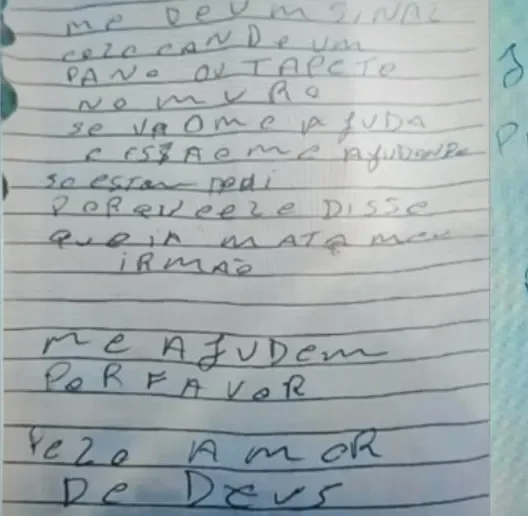 ME DEUM SINAL
COLOCANDEUM
PANO OU TAPETE
NO MURO
SE VAOME AJUDA
E ME AJUDA
SOESTAN PEDI
PORQUEELE DISSE
QUEIA MATA MEU
IRMAO
ME AJUDEM
POR FAVOR
PELO AMOR
DE DEUS